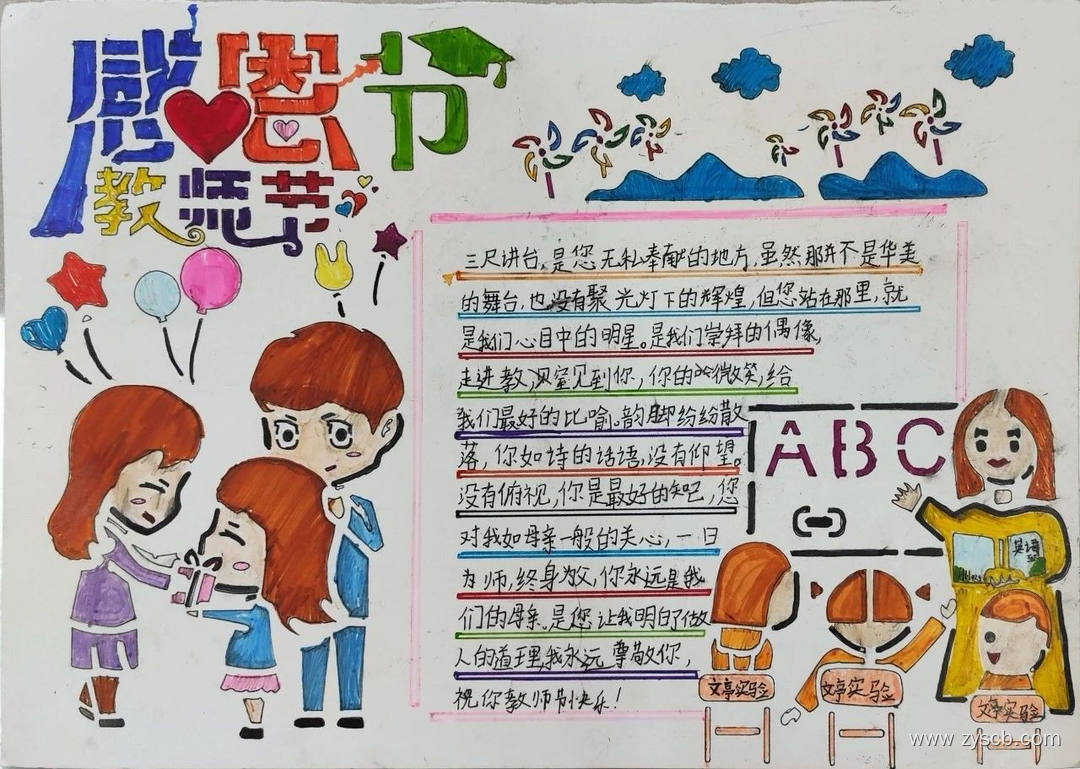 感恩节
教师节
三尺讲台,是您无私奉献的地方,虽然那并不是华美
的舞台,也没有聚光灯下的辉煌,但您站在那里,就
是我们心目中的明星。是我们崇拜的偶像,
走进教室见到你,你的微笑,给
我们最好的比喻。韵脚纷纷散
落,你如诗的话语,没有仰望。
没有俯视,你是最好的知己,您
对我如母亲一般的关心,一日
为师,终身为父,你永远是我
们的母亲.是您让我明白了做
人的道理,我永远尊敬你,
祝你教师节快乐!
ABC
英语
文亭实验
文亭实验
文亭实验
www.zyscb.com